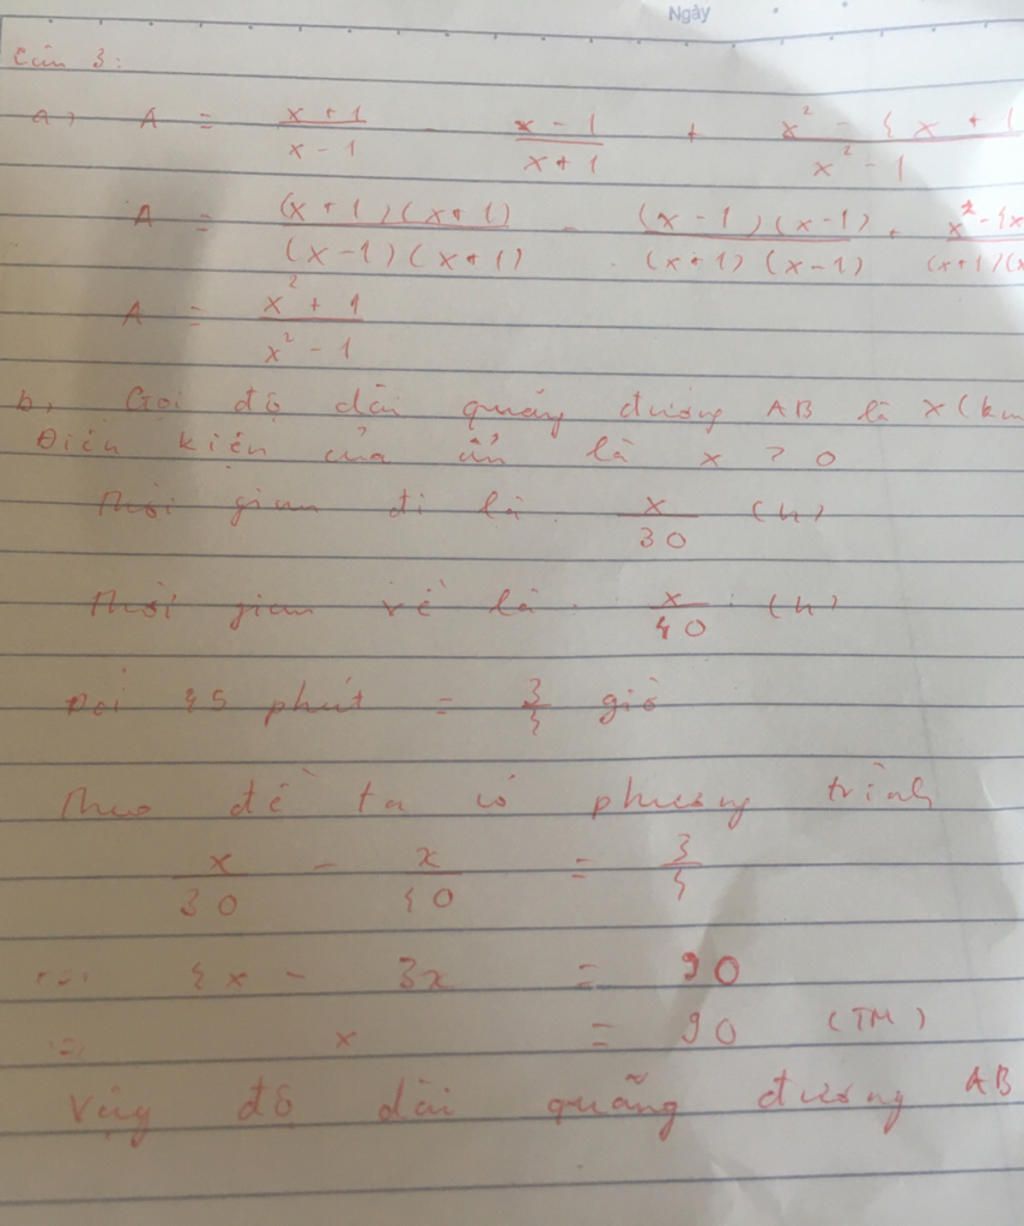 Ngày
Câu 3:
a, A = x + 1 / x - 1 - x - 1 / x + 1 + x² - 4x + 1 / x² - 1
A = (x + 1)(x + 1) / (x - 1)(x + 1) - (x - 1)(x - 1) / (x + 1)(x - 1) + x² - 4x / (x + 1)(x
A = x² + 1 / x² - 1
b, Gọi độ dài quãng đường AB là x (km
Điều kiện của ẩn là x > 0
Thời gian đi là x / 30 (h)
Thời gian về là x / 40 (h)
Đổi 45 phút = 3/4 giờ
Theo đề ta có phương trình
x / 30 - x / 40 = 3 / 4
<=> 4x - 3x = 90
<=> x = 90 (TM)
Vậy độ dài quãng đường AB